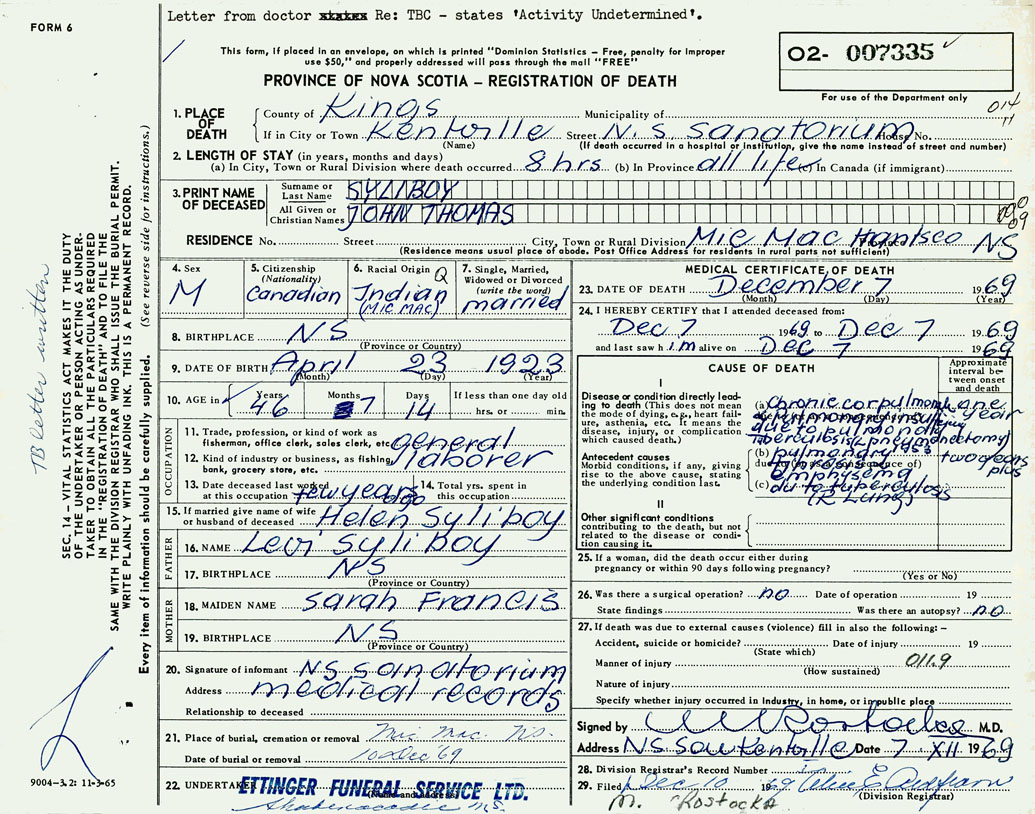 Letter from doctor states Re: TBC - states 'Activity Undetermined'.
FORM 6
This form, if placed in an envelope, on which is printed "Dominion Statistics – Free, penalty for improper
use $50," and properly addressed will pass through the mail "FREE"
PROVINCE OF NOVA SCOTIA – REGISTRATION OF DEATH
02- 007335
For use of the Department only
014
11
1. PLACE OF DEATH
County of Kings Municipality of
If in City or Town Kentville Street N.S. Sanatorium House No.
(Name) (If death occurred in a hospital or institution, give the name instead of street and number)
2. LENGTH OF STAY (in years, months and days)
(a) In City, Town or Rural Division where death occurred 8 hrs (b) In Province all life (c) In Canada (if immigrant)
3. PRINT NAME OF DECEASED
Surname or Last Name SYLIBOY
All Given or Christian Names JOHN THOMAS
RESIDENCE No. Street City, Town or Rural Division Mic Mac Hantsco Province NS
(Residence means usual place of abode. Post Office Address for residents in rural parts not sufficient)
4. Sex M
5. Citizenship (Nationality) Canadian
6. Racial Origin Indian (MIC MAC)
7. Single, Married, Widowed or Divorced (write the word) married
8. BIRTHPLACE NS
(Province or Country)
9. DATE OF BIRTH April 23 1923
(Month) (Day) (Year)
10. AGE in Years 46 Months 7 Days 14 If less than one day old hrs. or min.
OCCUPATION
11. Trade, profession, or kind of work as
fisherman, office clerk, sales clerk, etc. general
12. Kind of industry or business, as fishing,
bank, grocery store, etc. laborer
13. Date deceased last worked
at this occupation few years ago
14. Total yrs. spent in
this occupation
15. If married give name of wife
or husband of deceased Helen Syliboy
FATHER
16. NAME Levi Syliboy
17. BIRTHPLACE NS
(Province or Country)
MOTHER
18. MAIDEN NAME Sarah Francis
19. BIRTHPLACE NS
(Province or Country)
20. Signature of informant NS Sanatorium
Address medical records
Relationship to deceased
21. Place of burial, cremation or removal Mic Mac NS.
Date of burial or removal 10 Dec '69
22. UNDERTAKER ETTINGER FUNERAL SERVICE LTD.
(Name and address)
Shubenacadie N.S.
MEDICAL CERTIFICATE OF DEATH
23. DATE OF DEATH December 7 1969
(Month) (Day) (Year)
24. I HEREBY CERTIFY that I attended deceased from:
Dec 7 1969 to Dec 7 1969
and last saw him alive on Dec 7 1969
CAUSE OF DEATH
Approximate interval between onset and death
I
Disease or condition directly leading to death (This does not mean the mode of dying, e.g., heart failure, asthenia, etc. It means the disease, injury, or complication which caused death.)
(a) chronic cor pulmonale one year
due to pulmonary
tuberculosis (pneumonectomy)
1953
Antecedent causes
Morbid conditions, if any, giving rise to the above cause, stating the underlying condition last.
(b) pulmonary
due to (or as a consequence of)
emphysema
two years plus
(c) due to tuberculosis
(R Lung)
II
Other significant conditions
contributing to the death, but not related to the disease or condition causing it.
25. If a woman, did the death occur either during
pregnancy or within 90 days following pregnancy?
(Yes or No)
26. Was there a surgical operation? no Date of operation 19
State findings Was there an autopsy? no
27. If death was due to external causes (violence) fill in also the following: –
Accident, suicide or homicide? Date of injury 19
(State which)
Manner of injury 011.9
(How sustained)
Nature of injury
Specify whether injury occurred in industry, in home, or in public place
Signed by M.D.
Address NS San Kentville Date 7 XII 1969
28. Division Registrar's Record Number
29. Filed Dec 10 1969
(Division Registrar)
M. Rostocka
SEC. 14 – VITAL STATISTICS ACT MAKES IT THE DUTY
OF THE UNDERTAKER OR PERSON ACTING AS UNDER-
TAKER TO OBTAIN ALL THE PARTICULARS REQUIRED
IN THE "REGISTRATION OF DEATH" AND TO FILE THE
SAME WITH THE DIVISION REGISTRAR WHO SHALL ISSUE THE BURIAL PERMIT.
WRITE PLAINLY WITH UNFADING INK. THIS IS A PERMANENT RECORD.
Every item of information should be carefully supplied. (See reverse side for instructions.)
TB letter written
9004-3.2: 11-3-65